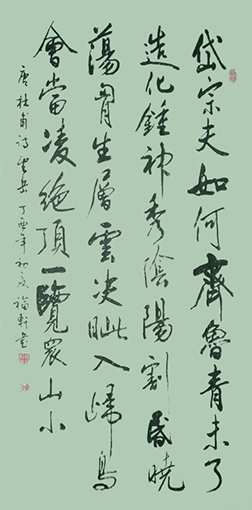 岱宗夫如何齊魯青未了
造化鍾神秀陰陽割昬曉
蕩胷生層雲決眦入歸鳥
會當凌絕頂一覽眾山小
唐杜甫詩望岳 丁酉年初夏 福軒書